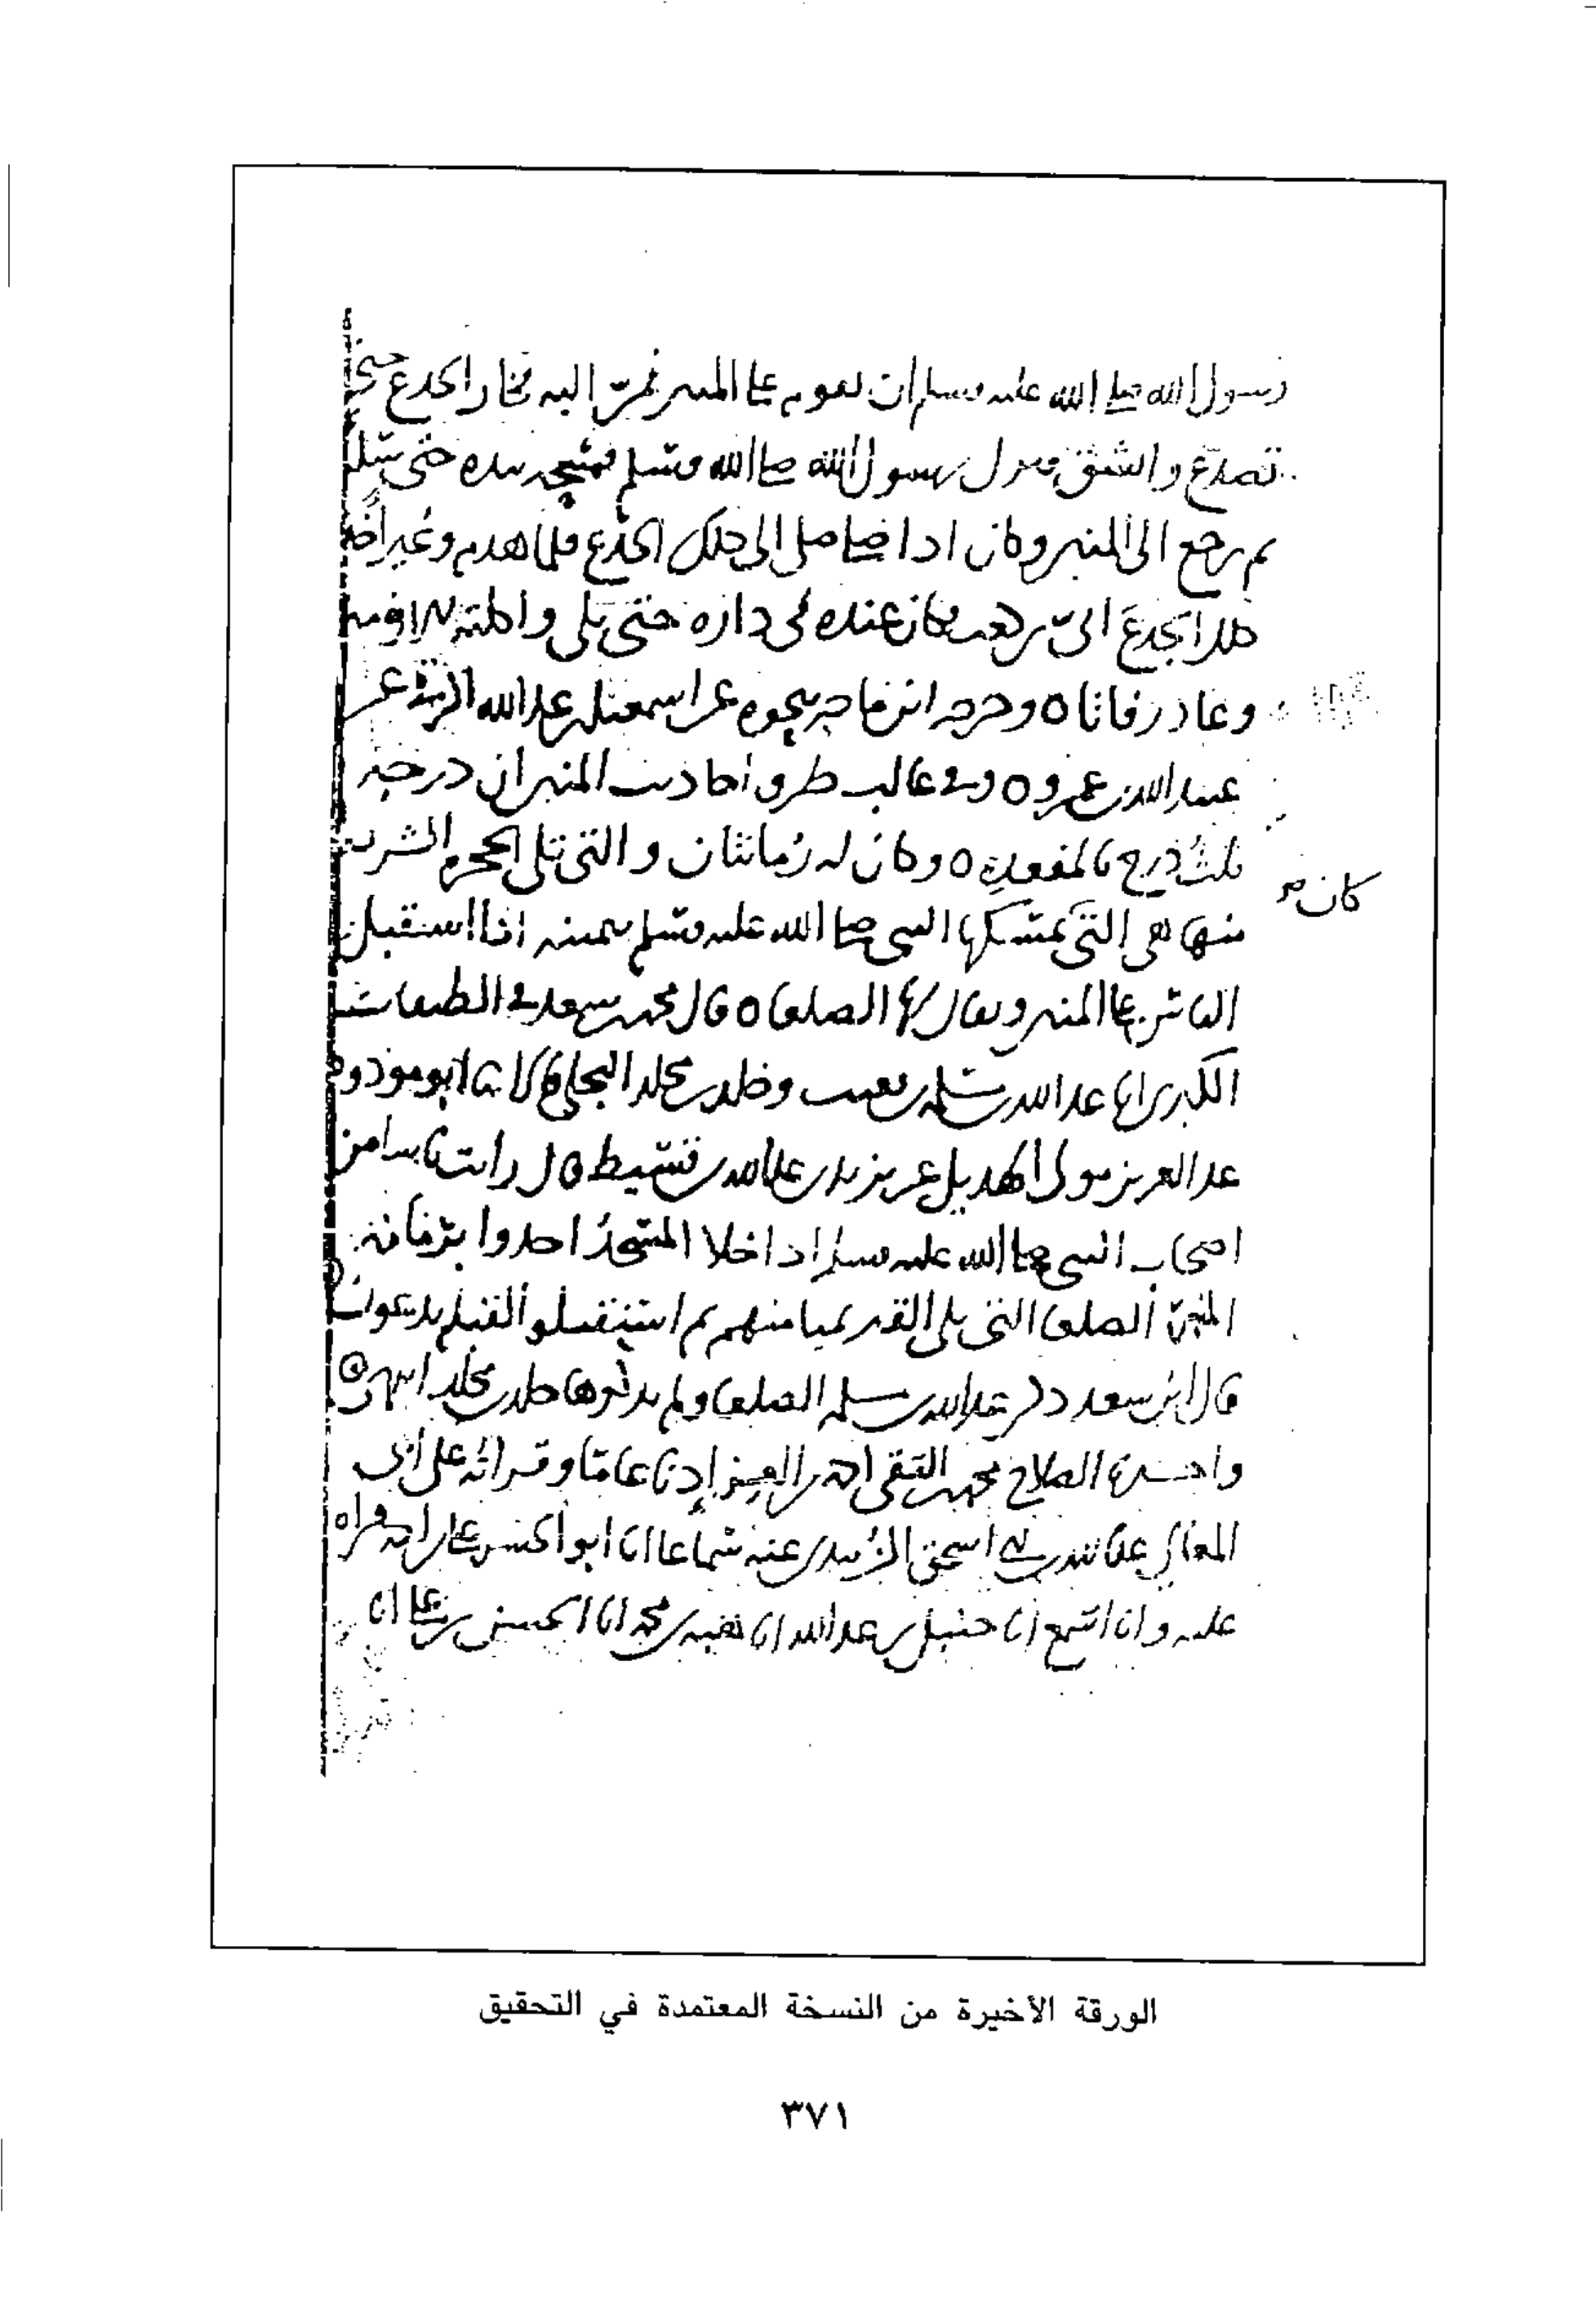 رسول الله صلى الله عليه وسلم ان يقوم على المنبر فمر اليه فخار الجدع حتى
تصدع وانشق فنزل رسول الله صلى الله وسلم فمسحه بيده حتى سكن
ثم رجع الى المنبر وكان اذا صلى صلى الى ذلك الجذع فلما هدم وغير اخذ
ذلك الجذع ابى بن كعب فكان عنده في داره حتى بلي واكلته الارضه
وعاد رفاتا ٥ وخرجه ابن ماجه بنحوه عن اسمعيل بن عبد الله الرقي عن
عبيد الله بن عمرو ٥ وفي غالب طرق احاديث المنبر ان درجه
ثلث درج بالمقعده ٥ وكان له رمانتان والتي تلي الحجره الشريفه
كان صلى
منها هي التي يمسكها النبي صلى الله عليه وسلم بيمينه اذا استقبل
الناس على المنبر ويقال لها الصلعا ٥ قال محمد بن سعد في الطبقات
الكبرى انا عبد الله بن مسلمه بن قعنب وخالد بن مخلد البجلي قالا ثنا ابو مودود
عبد العزيز مولى لهذيل عن يزيد بن عبد الله بن قسيط قال رايت ناسا من
اصحاب النبي صلى الله عليه وسلم اذا خلا المسجد اخذوا برمانة
المنبر الصلعا التي تلي القبر بميامنهم ثم استقبلوا القبله يدعون
قال ابن سعد ذكر عبد الله بن مسلمه الصلعا ولم يذكرها خالد بن مخلد انتهى
واخبرنا الصلاح محمد بن التقي احمد بن العز اذنا عاما وقرائه على ابي
المعالي عبد الله بن ابي اسحق الزبيدي عنه سماعا انا ابو الحسن علي بن احمد قراه
عليه وانا اسمع انا حنبل بن عبد الله انا هبه بن محمد انا الحسن بن علي انا
الورقة الأخيرة من النسخة المعتمدة في التحقيق
٣٧١